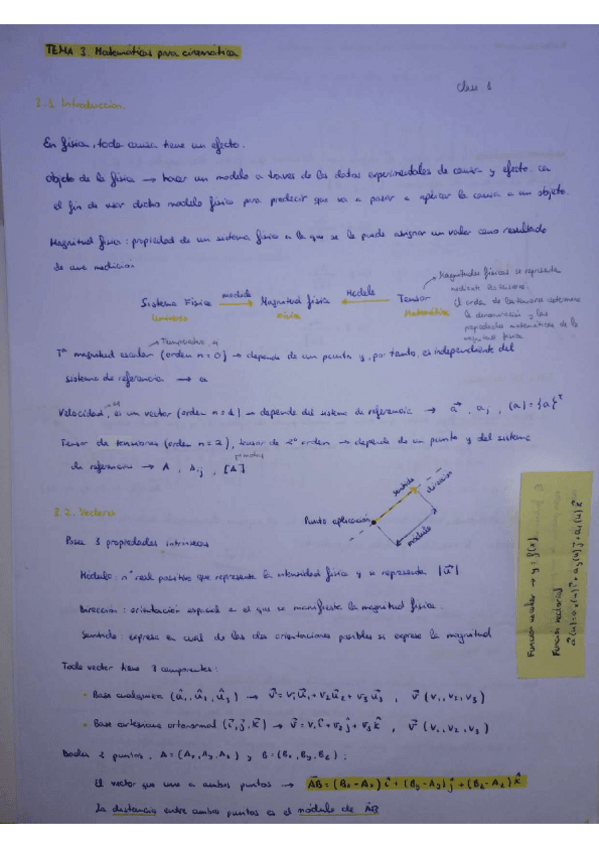 TEMA 3. Matemáticas para cinemática
Clase 1
2.1 Introducción.
En física, toda causa tiene un efecto.
Objeto de la física → hacer un modelo a traves de los datos experimentales de causa y efecto, con
el fin de usar dicho modelo físico para predecir que va a pasar a aplicar la causa a un objeto.
Magnitud física: propiedad de un sistema físico a la que se le puede asignar un valor como resultado
de una medición
Magnitudes físicas se representa
mediante tensores.
Sistema Físico modelo Magnitud física Modelo Tensor
El orden de los tensores determina
Física Matemática
la denominación y las
propiedades matemáticas de la
magnitud física
Temperatura
magnitud escalar (orden n=0) → depende de un punto y, por tanto, es independiente del
sistema de referencia → a
Velocidad, es un vector (orden n=1) → depende del sistema de referencia → a⃗, aⱼ, (a) = {a}ᵀ
Tensor de tensiones (orden n=2), tensor de 2º orden → depende de un punto y del sistema
de referencia → A, Aᵢⱼ, [A]
2.2. Vectores
sentido
dirección
Punto aplicación
módulo
Posee 3 propiedades intrínsecas
Módulo: nº real positivo que representa la intensidad física y se representa |u⃗|
Dirección: orientación espacial en el que se manifiesta la magnitud física.
Sentido: expresa en cual de las dos orientaciones posibles se expresa la magnitud
Todo vector tiene 3 componentes:
• Base cualquiera (û₁, û₂, û₃) → v⃗ = v₁û₁ + v₂û₂ + v₃û₃, v⃗ (v₁, v₂, v₃)
• Base cartesiana ortonormal (i⃗, j⃗, k⃗) → v⃗ = v₁i⃗ + v₂j⃗ + v₃k⃗, v⃗ (v₁, v₂, v₃)
Dados 2 puntos, A = (Aₓ, Aᵧ, A_z) y B = (Bₓ, Bᵧ, B_z):
El vector que une a ambos puntos → A⃗B = (Bₓ - Aₓ) i⃗ + (Bᵧ - Aᵧ) j⃗ + (B_z - A_z) k⃗
La distancia entre ambos puntos es el módulo de A⃗B
Función escalar → y = f(x)
Función vectorial
a⃗(u) = aₓ(u) i⃗ + aᵧ(u) j⃗ + a_z(u) k⃗